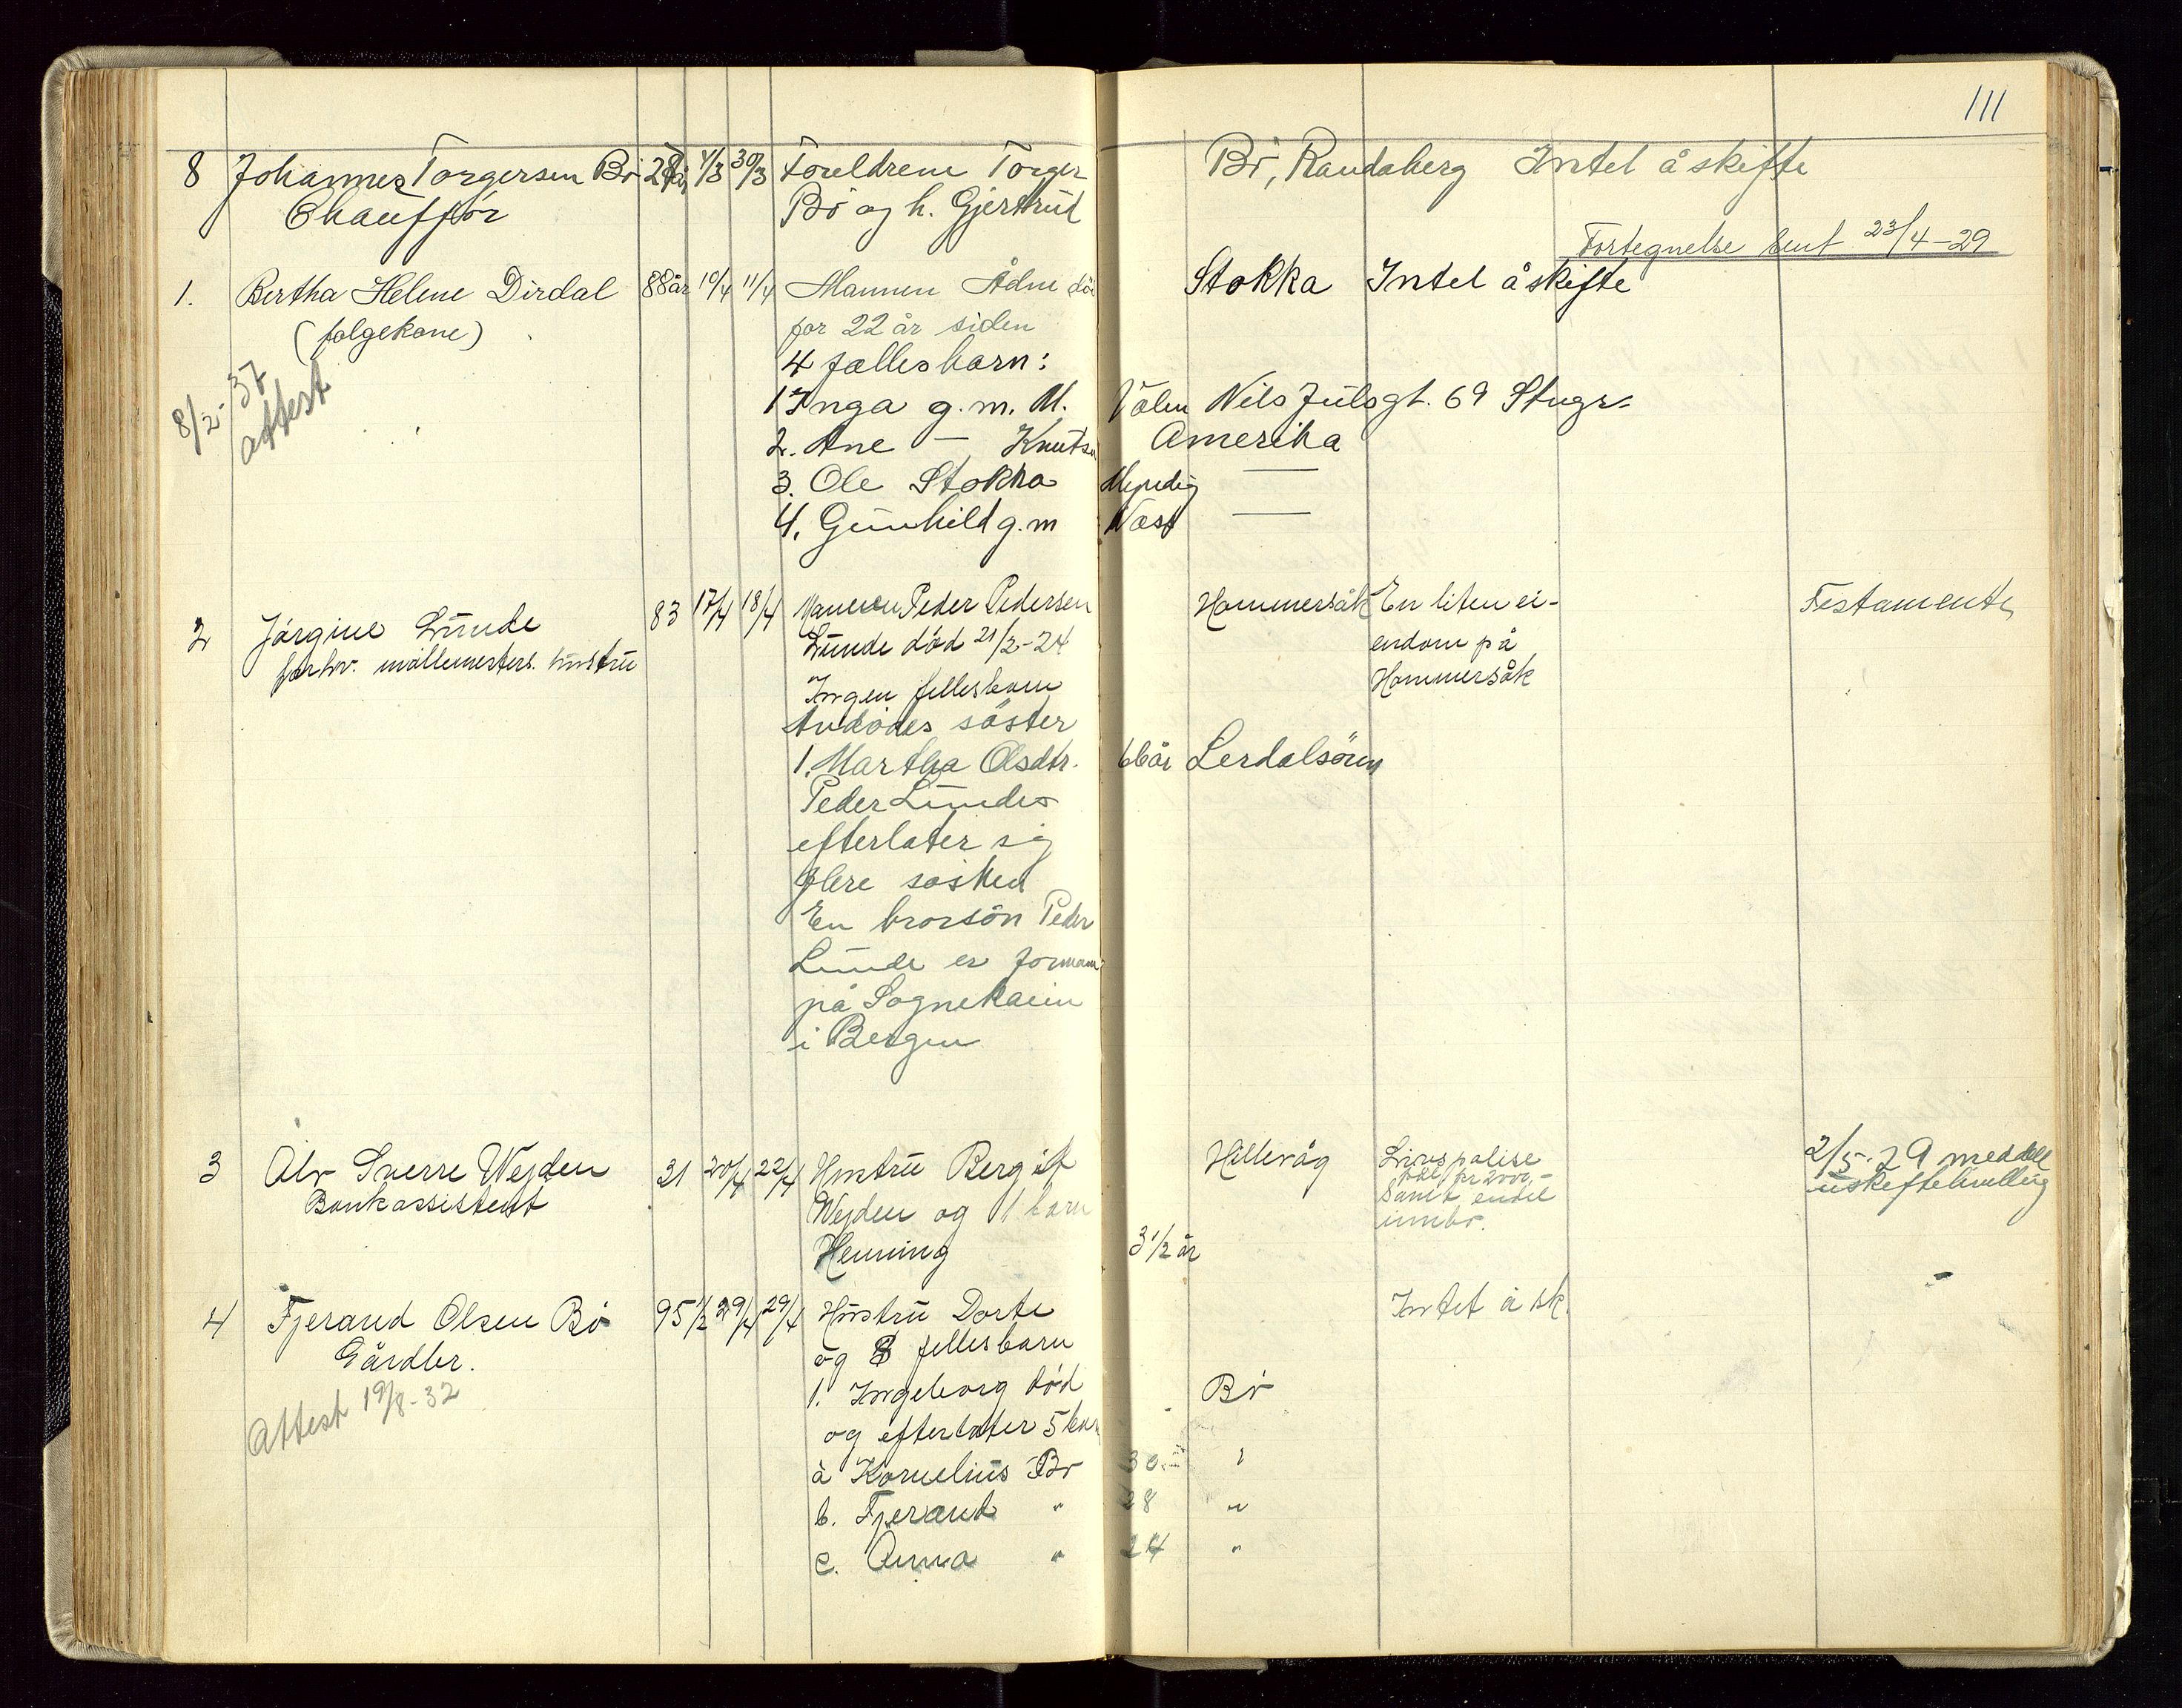 111
8 Johannes Torgersen Bö 28 år 4/3 30/3 Foreldrene Torger Bö, Randaberg Intet å skifte
Chauffør Bö og h. Gjertrud
Fortegnelse sent 23/4-29
1. Bertha Helene Dirdal 88 år 10/4 11/4 Mannen Ådne död Stokka Intet å skifte
(folgekone) for 22 år siden
4 fællesbarn:
8/2-37 attest
1 Inga g.m. M. Völen Nils Julsgt. 69 Stvgr.
2. Ane — Knutsen Amerika
3. Ole Stokka Myndig —
4. Gunhild g.m Næss —
2 Jörgine Lunde 83 17/4 18/4 Mannen Peder Pedersen Hommersåk En liten ei- Testamente
forhv. møllemesters hustru Lunde död 21/2-24 endom på
Ingen fellesbarn Hommersåk
Avdödes söster
1. Martha Olsdtr. 66 år Lerdalsören
Peder Lundes
efterlater sig
flere søsken
En brorsön Peder
Lunde er formann
på Sognekaien
i Bergen
3 Alv Sverre Wejden 31 20/4 22/4 Hustru Bergit Hillevåg Livspolise 2/5-29 meddelt
Bankassistent Wejden og 1 barn pål. kr 2000,- samt endel uskiftebevilling
Henning 3 1/2 år innbo.
4 Tjerand Olsen Bö 95 1/2 29/4 29/4 Hustru Dorte Intet å sk. -
Gårdbr. og 8 fellesbarn
1. Ingeborg död Bö
Attest 19/8-32 og efterlater 5 barn
a Kornelius Bö 30 "
b. Tjerand " 28 "
c. Anna " 24 "